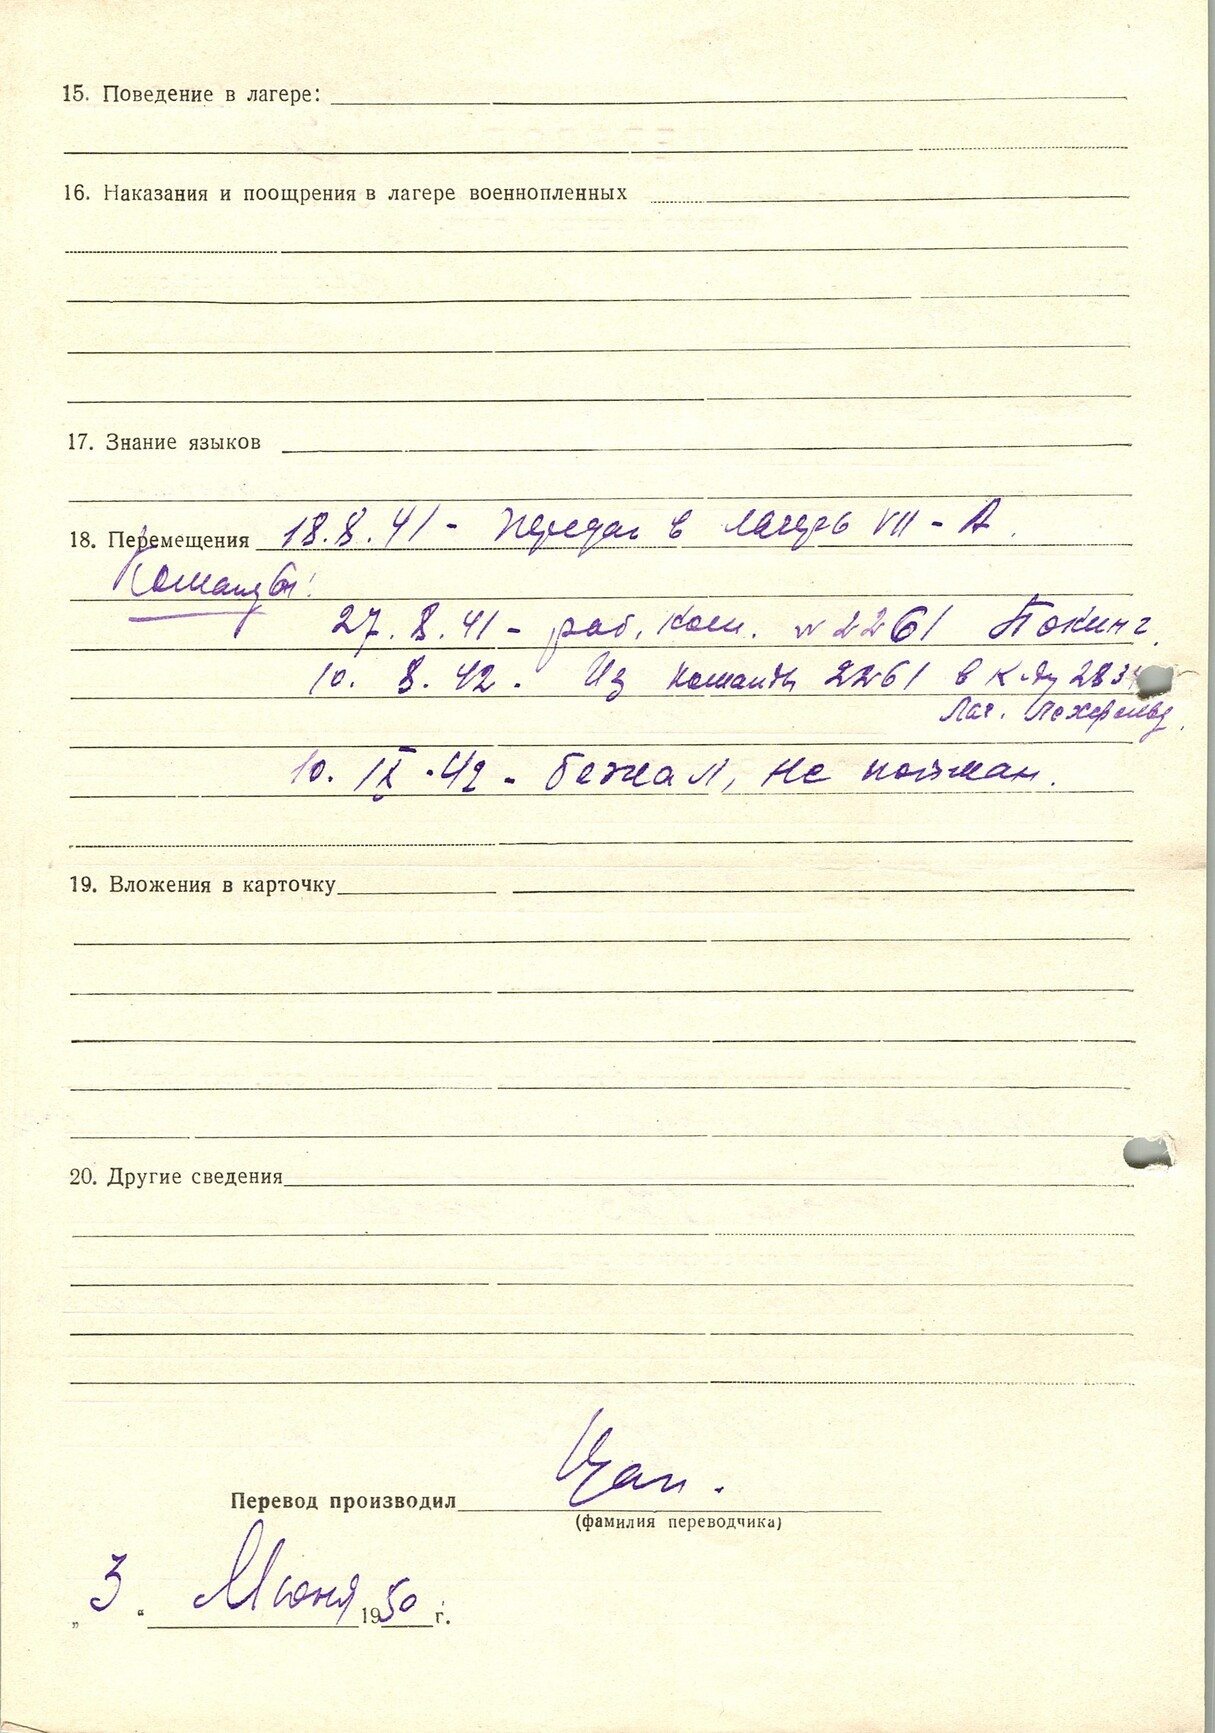 15. Поведение в лагере:
16. Наказания и поощрения в лагере военнопленных
17. Знание языков
18. Перемещения 18.8.41 - Передан в лагерь VII - А.
Команды:
27.8.41 - раб. ком. № 2261 Покинг.
10. 8. 42. Из команды 2261 в к-ду 283
Лаг. Лехфельд.
10. IX. 42 - бежал, не пойман.
19. Вложения в карточку
20. Другие сведения
Перевод производил
(фамилия переводчика)
„ 3 “ Июня 1950 г.